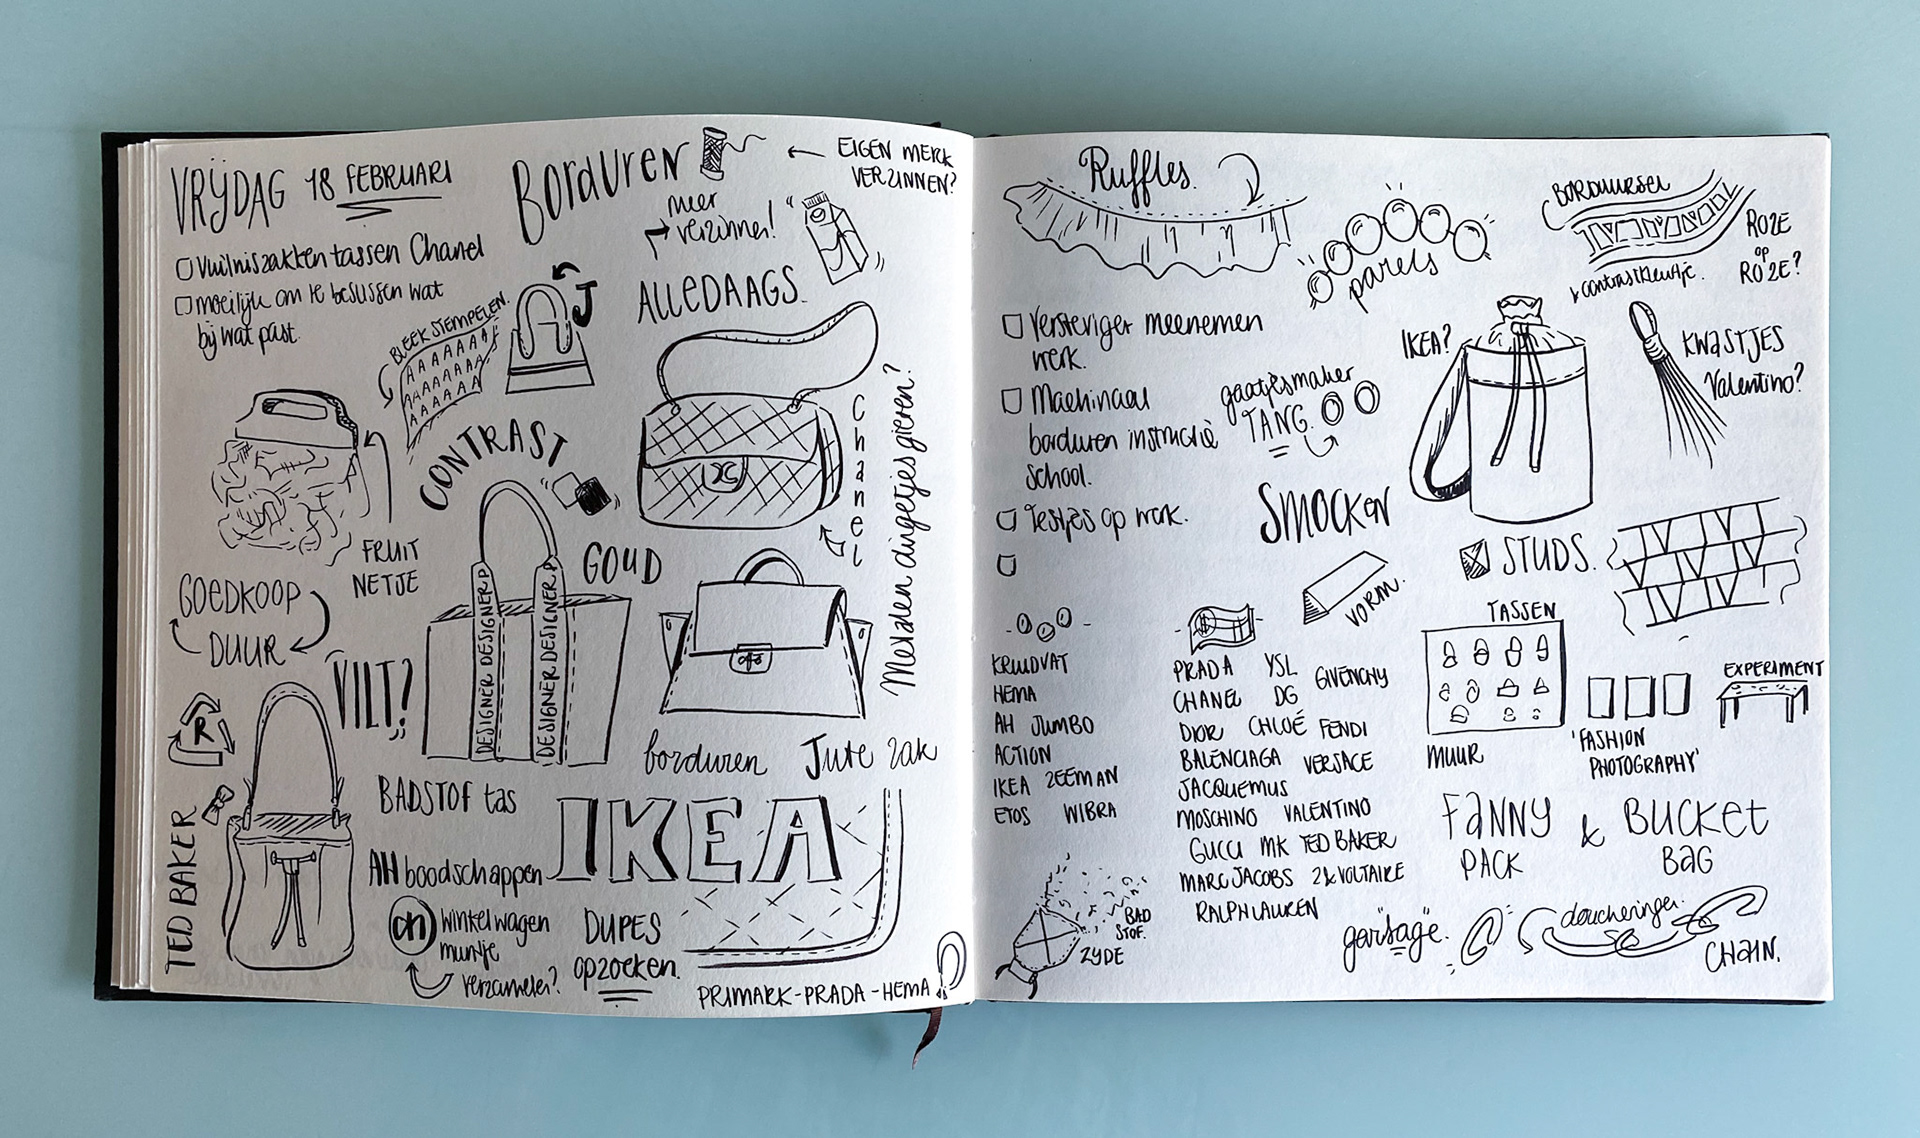 VRIJDAG 18 FEBRUARI
BORDUREN
EIGEN MERK
VERZINNEN?
meer
verzinnen!
Vuilniszakken tassen Chanel
moeilijk om te beslissen wat
bij wat past.
BLEEK STEMPELEN.
AAAAAAA
AAAAAA
AAAAA
J
ALLEDAAGS.
CONTRAST
Chanel
Metalen dingetjes gieren?
FRUIT
NETJE
GOEDKOOP
DUUR
GOUD
VILT?
DESIGNER DESIGNER
DESIGNER DESIGNER
R
borduren Jute zak
TED BAKER
BADSTOF tas
IKEA
AH boodschappen
winkelwagen
muntje
verzamelen?
DUPES
opzoeken.
PRIMARK-PRADA-HEMA
Ruffles.
parels
BORDUURSEL
ROZE
op
ROZE?
contrastkleurtje.
Versteviger meenemen
werk.
Machinaal
borduren instructie
school.
Testjes op werk.
gaatjesmaker
TANG.
IKEA?
KWASTJES
Valentino?
SMOCKEN
STUDS.
VORM.
KRUIDVAT
HEMA
AH JUMBO
ACTION
IKEA ZEEMAN
ETOS WIBRA
PRADA YSL GIVENCHY
CHANEL DG
DIOR CHLOÉ FENDI
BALENCIAGA VERSACE
JACQUEMUS
MOSCHINO VALENTINO
GUCCI MK TED BAKER
MARC JACOBS Z&VOLTAIRE
RALPH LAUREN
TASSEN
MUUR
'FASHION
PHOTOGRAPHY'
EXPERIMENT
FANNY & BUCKET
PACK BAG
BAD
STOF.
ZYDE
"garbage".
doucheringen.
CHAIN.